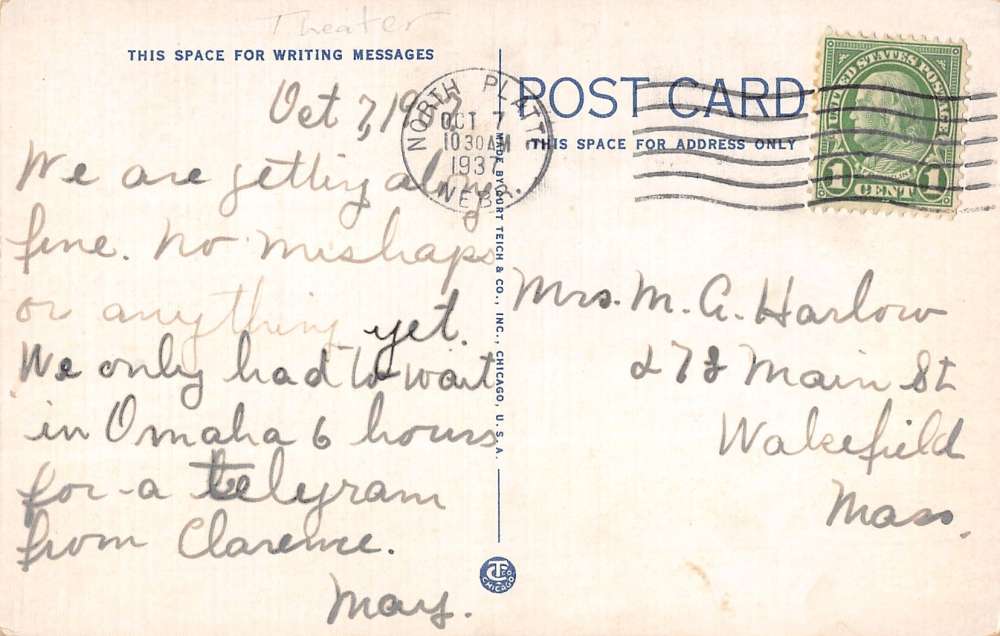 Theater
THIS SPACE FOR WRITING MESSAGES
Oct 7, 1937
We are getting along
fine. No mishaps
or anything yet.
We only had to wait
in Omaha 6 hours
for a telegram
from Clarence.
May.
NORTH PLATTE
OCT 7
10 30 AM
1937
NEBR.
MADE BY CURT TEICH & CO., INC., CHICAGO, U.S.A.
CHICAGO
POST CARD
THIS SPACE FOR ADDRESS ONLY
UNITED STATES POSTAGE
1 CENT 1
Mrs. M. A. Harlow
Main St
Wakefield
Mass.